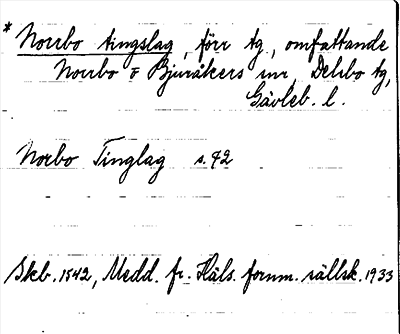 * Norrbo tingslag, förr tg., omfattande
Norrbo o Bjuråkers snr, Delsbo tg,
Gävleb. l.
Norbo Tinglag s. 42
Skb. 1542, Medd. fr. Häls. fornm. sällsk. 1933